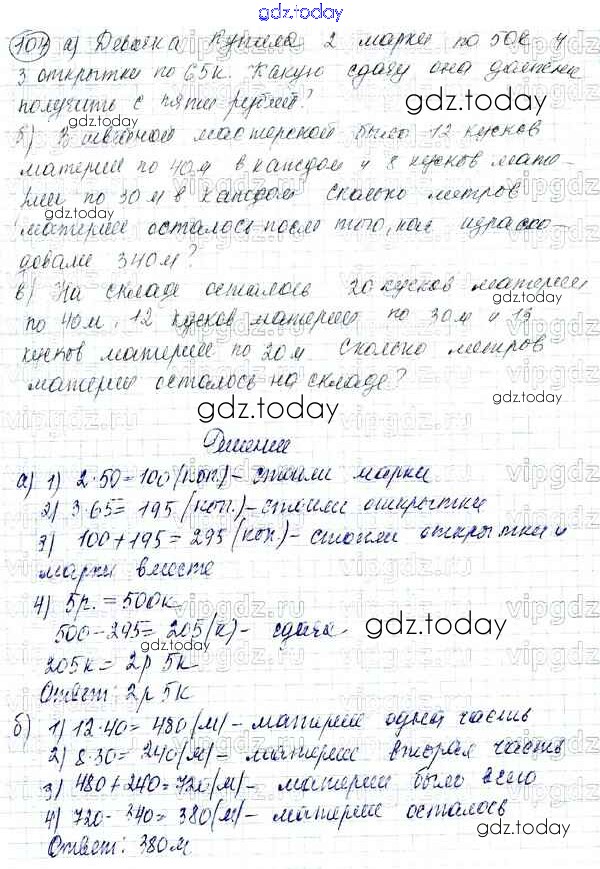 gdz.today
107 а) Девочка купила 2 марки по 50к и
3 открытки по 65к. Какую сдачу она должна
получить с пяти рублей?
gdz.today
б) В швейной мастерской было 12 кусков
материи по 40м в каждом и 8 кусков мате-
рии по 30м в каждом Сколько метров
gdz.today
материи осталось после того, как израсхо-
довали 340м?
в) На складе осталось 20 кусков материи
по 40м, 12 кусков материи по 30м и
кусков материи по 20м Сколько метров
материи осталось на складе?
gdz.today
Решение
а) 1) 2·50=100(коп.)- стоили марки
2) 3·65= 195(коп.)- стоили открытки
3) 100+195= 295(коп.)- стоили открытки и
марки вместе
4) 5р.=500к
500-295= 205(к)- сдача
gdz.today
205к= 2р 5к
Ответ: 2р 5к
б) 1) 12·40= 480(м)- материи одна часть
2) 8·30= 240(м)- материи вторая часть
3) 480+240=720(м)- материи было всего
4) 720-340=380(м)- материи осталось
Ответ: 380м
gdz.today